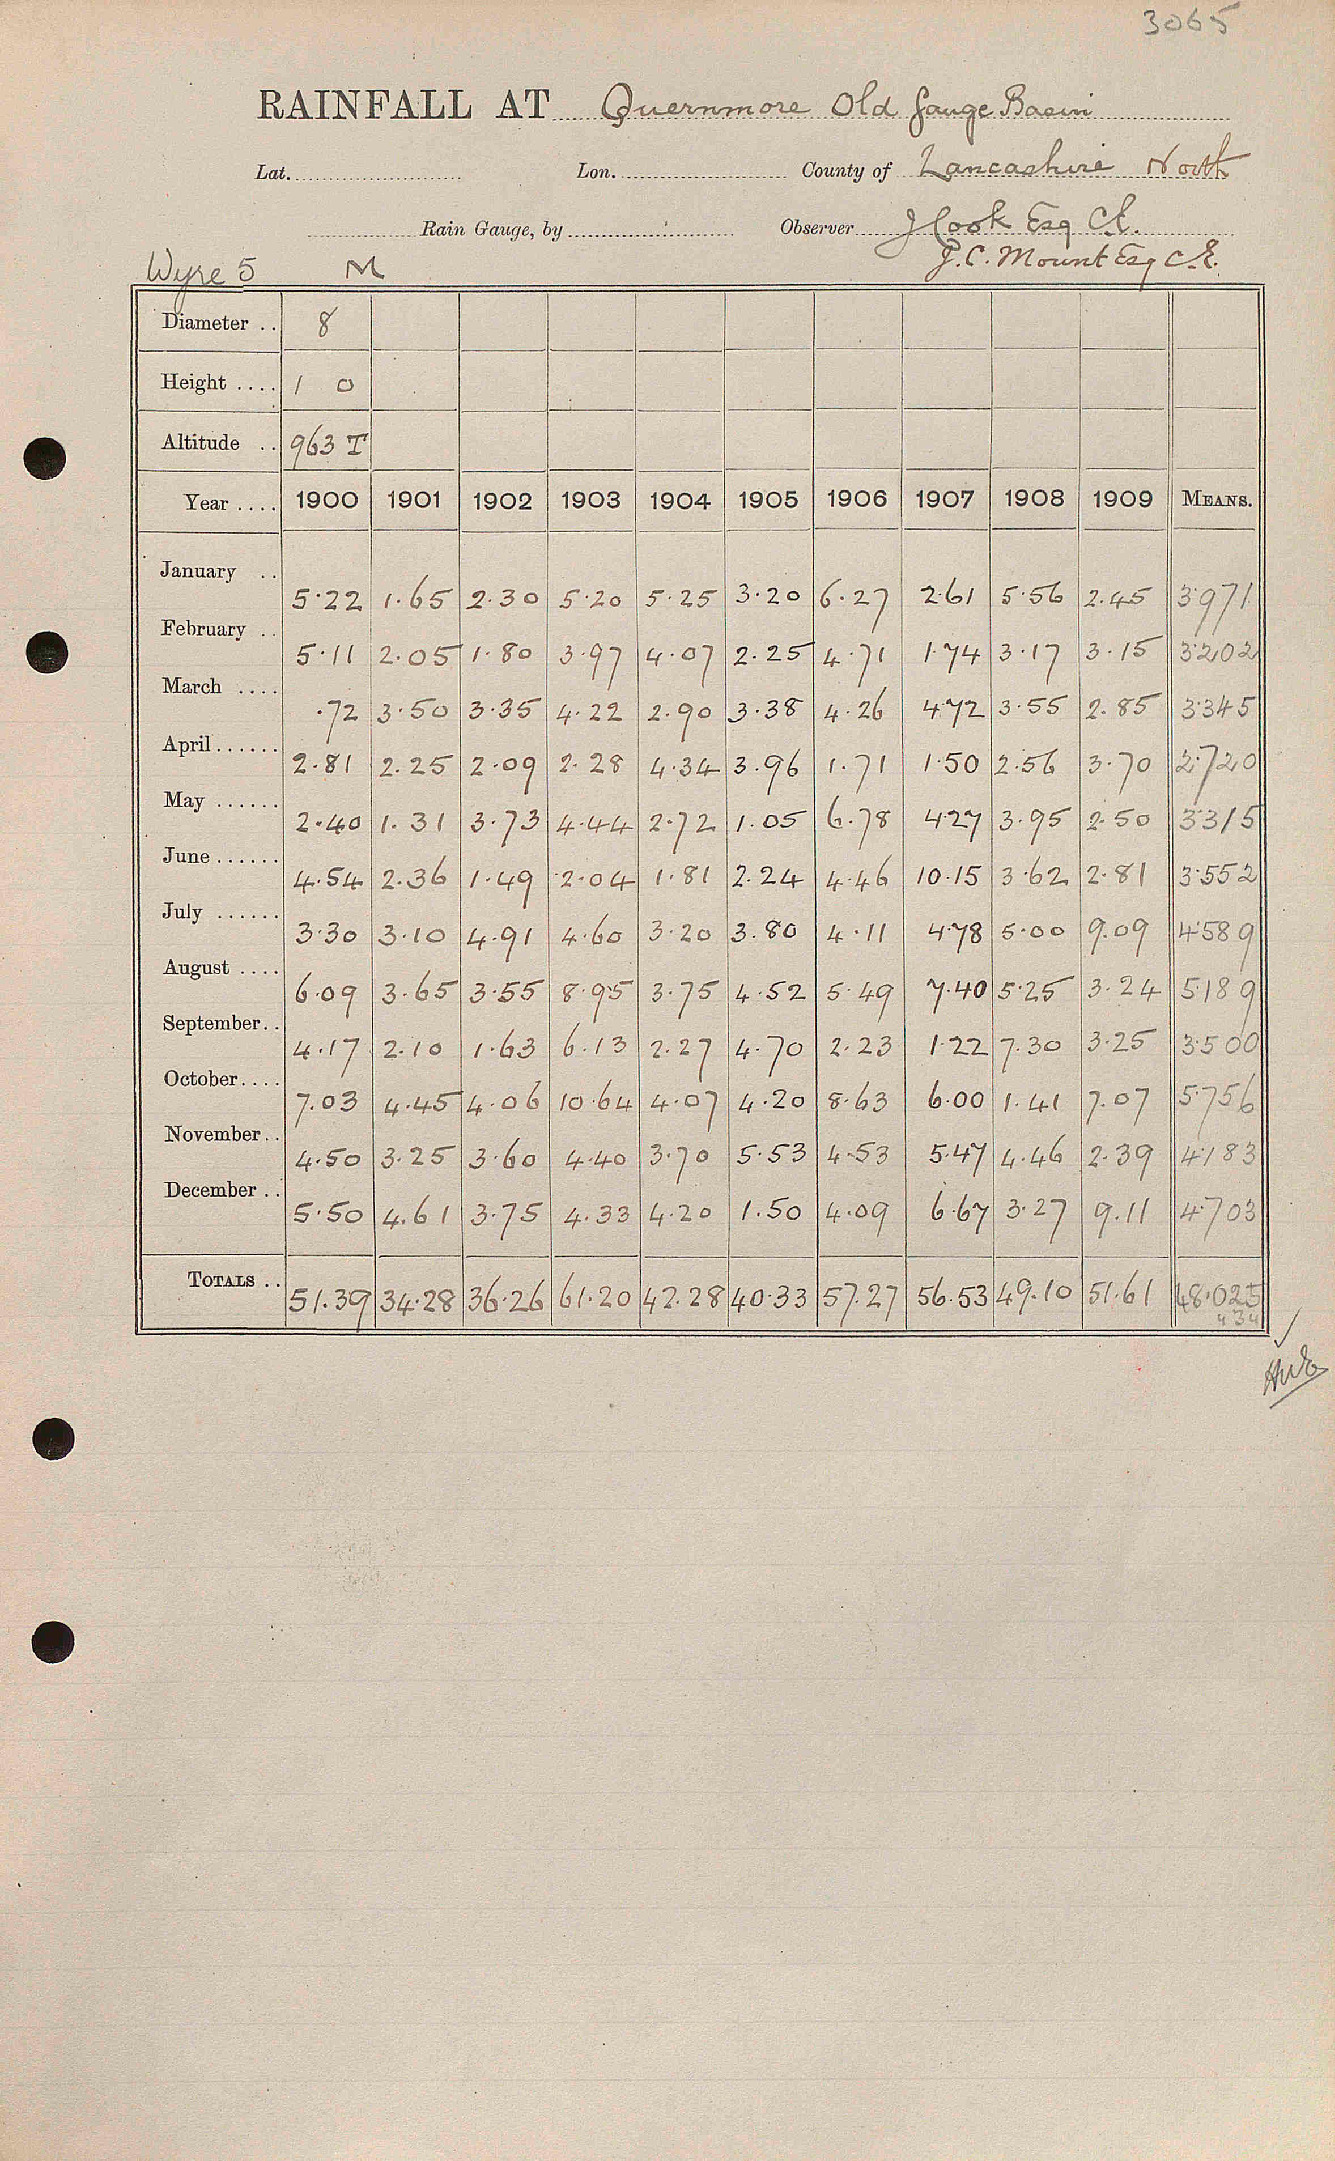 3065
RAINFALL AT Quernmore Old Gauge Basin
Lat. Lon. County of Lancashire North
Rain Gauge, by Observer J Cook Esq C.E.
J.C. Mount Esq C.E.
Wyre 5 M
Diameter .. 8
Height .... 1 0
Altitude .. 963 T
Year .... 1900 1901 1902 1903 1904 1905 1906 1907 1908 1909 MEANS.
January .. 5.22 1.65 2.30 5.20 5.25 3.20 6.27 2.61 5.56 2.45 3.971
February .. 5.11 2.05 1.80 3.97 4.07 2.25 4.71 1.74 3.17 3.15 3.202
March .... .72 3.50 3.35 4.22 2.90 3.38 4.26 4.72 3.55 2.85 3.345
April ...... 2.81 2.25 2.09 2.28 4.34 3.96 1.71 1.50 2.56 3.70 2.720
May ...... 2.40 1.31 3.73 4.44 2.72 1.05 6.78 4.27 3.95 2.50 3.315
June ...... 4.54 2.36 1.49 2.04 1.81 2.24 4.46 10.15 3.62 2.81 3.552
July ...... 3.30 3.10 4.91 4.60 3.20 3.80 4.11 4.78 5.00 9.09 4.589
August .... 6.09 3.65 3.55 8.95 3.75 4.52 5.49 7.40 5.25 3.24 5.189
September .. 4.17 2.10 1.63 6.13 2.27 4.70 2.23 1.22 7.30 3.25 3.500
October .... 7.03 4.45 4.06 10.64 4.07 4.20 8.63 6.00 1.41 7.07 5.756
November .. 4.50 3.25 3.60 4.40 3.70 5.53 4.53 5.47 4.46 2.39 4.183
December .. 5.50 4.61 3.75 4.33 4.20 1.50 4.09 6.67 3.27 9.11 4.703
TOTALS .. 51.39 34.28 36.26 61.20 42.28 40.33 57.27 56.53 49.10 51.61 48.025
434